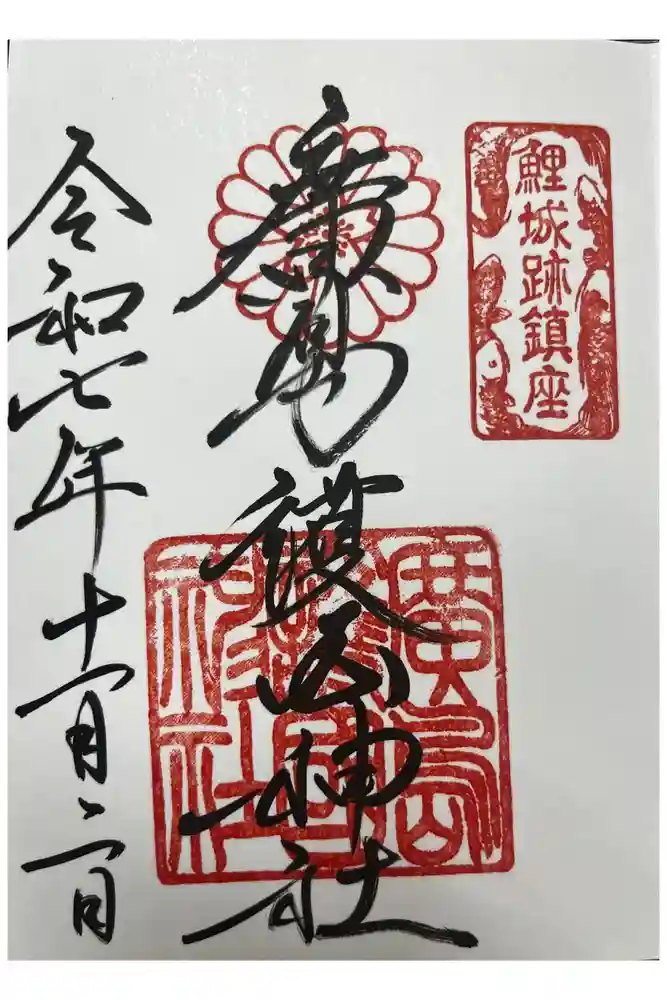 鯉城跡鎮座
廣島護國神社
廣島
護國
神社
令和七年十一月二日